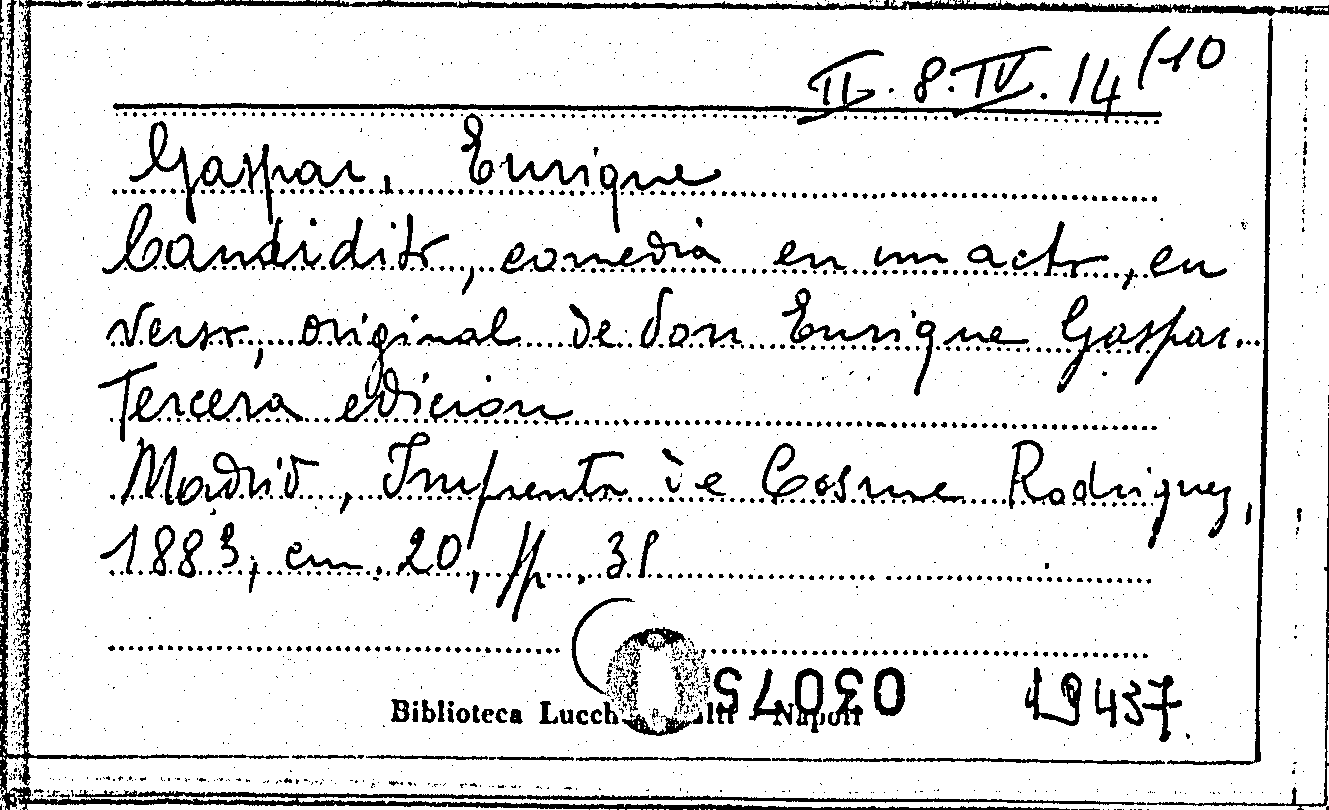 II. 8. IV. 14 (10
Gaspar, Enrique
Candidito, comedia en un acto, en
verso, original de don Enrique Gaspar.
Tercera edicion
Madrid, Imprenta de Cosme Rodriguez,
1883, cm. 20, pp. 31
03075 19437
Biblioteca Napoli